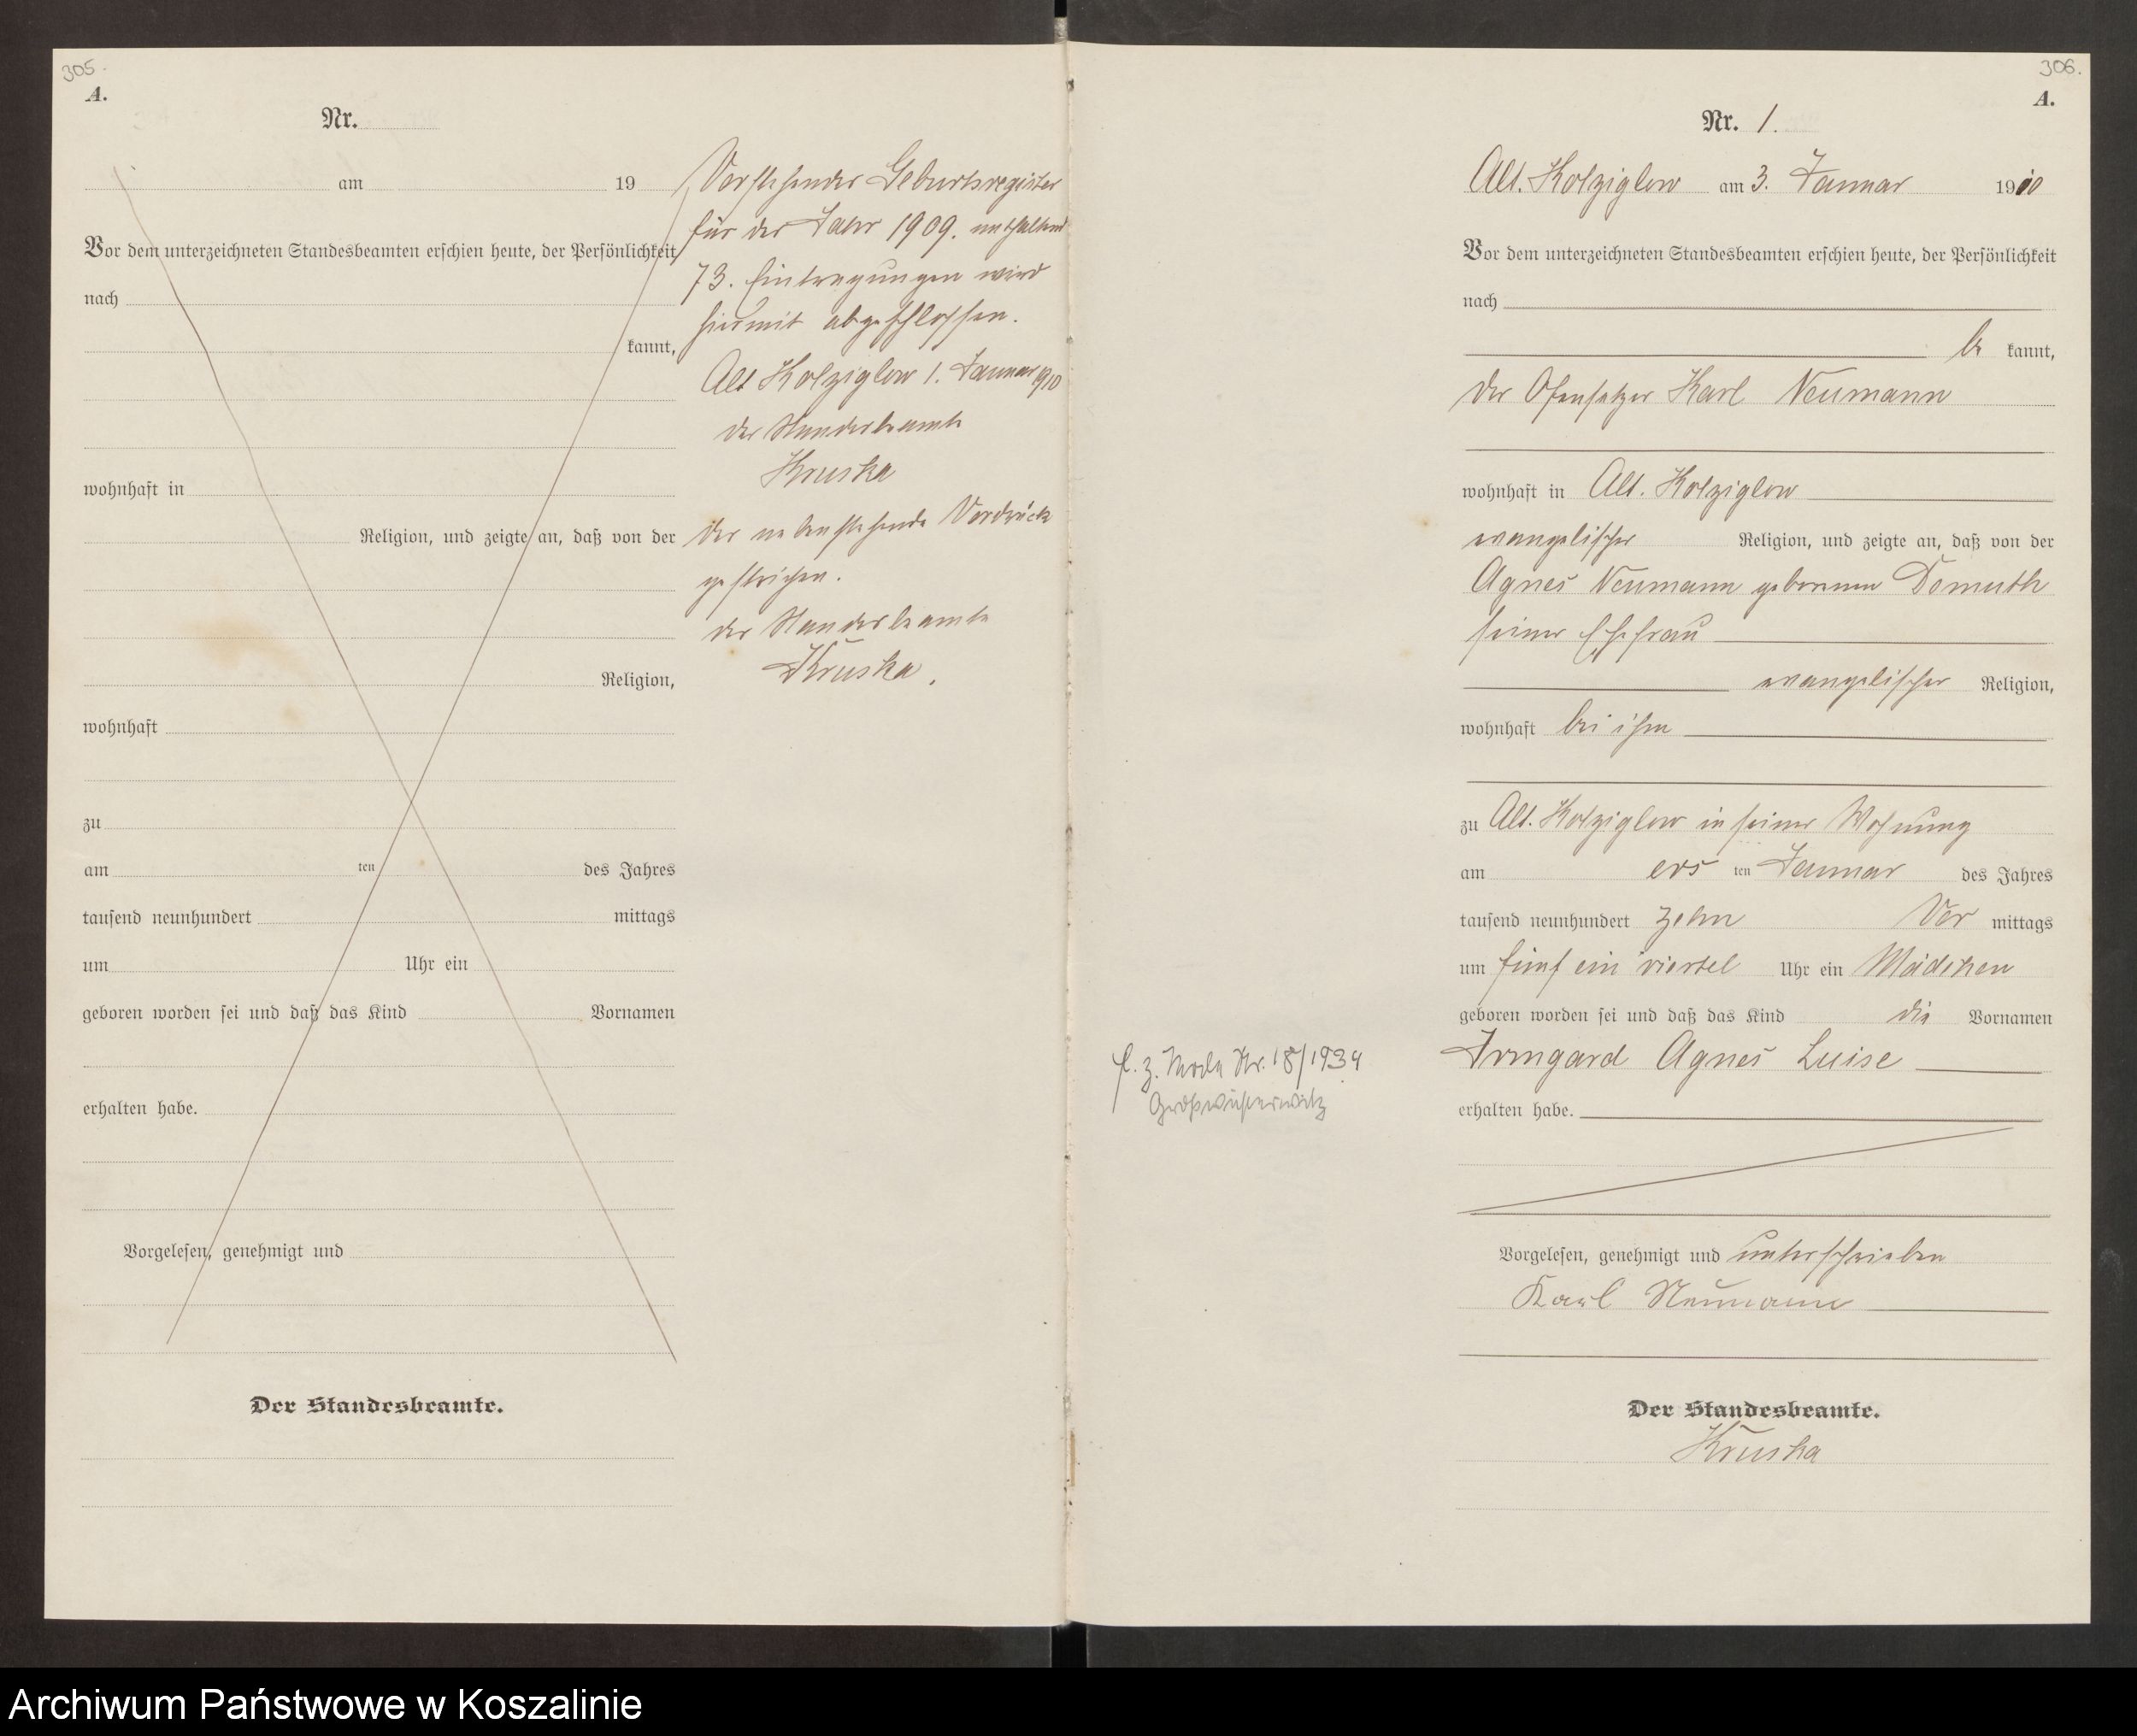 305.
A.
Nr.
am 19
Vor dem unterzeichneten Standesbeamten erschien heute, der Persönlichkeit
nach
kannt,
wohnhaft in
Religion, und zeigte an, daß von der
Religion,
wohnhaft
zu
am ten des Jahres
tausend neunhundert mittags
um Uhr ein
geboren worden sei und daß das Kind Vornamen
erhalten habe.
Vorgelesen, genehmigt und
Der Standesbeamte.
Vorstehender Geburtsregister
für das Jahr 1909. enthaltend
73. Eintragungen wird
hiermit abgeschlossen.
Alt Kolziglow 1. Januar 1910
der Standesbeamte
Kruska
Der nebenstehende Vordruck
gestrichen.
der Standesbeamte
Kruska.
306.
A.
Nr. 1.
Alt. Kolziglow am 3. Januar 1910
Vor dem unterzeichneten Standesbeamten erschien heute, der Persönlichkeit
nach
be kannt,
der Ofensetzer Karl Neumann
wohnhaft in Alt. Kolziglow
evangelischer Religion, und zeigte an, daß von der
Agnes Neumann geborenen Demuth
seiner Ehefrau
evangelischer Religion,
wohnhaft bei ihm
zu Alt. Kolziglow in seiner Wohnung
am ers ten Januar des Jahres
tausend neunhundert zehn Vor mittags
um fünf ein viertel Uhr ein Mädchen
geboren worden sei und daß das Kind die Vornamen
Irmgard Agnes Luise
erhalten habe.
Vorgelesen, genehmigt und unterschrieben
Karl Neumann
Der Standesbeamte.
Kruska
Nr. 18/1934
Großwusterwitz
Archiwum Państwowe w Koszalinie